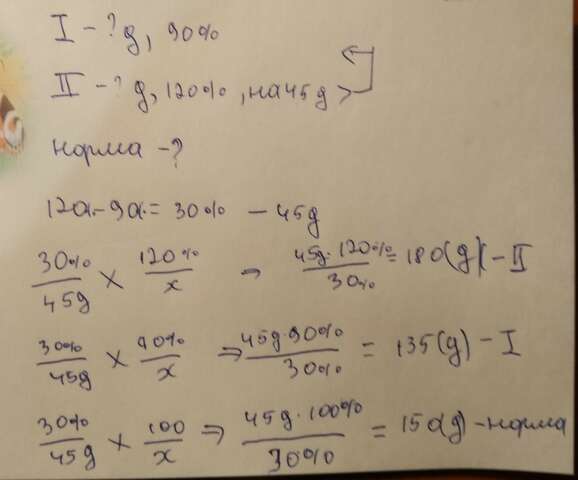 I – ? g, 90%
II – ? g, 120%, на 45g >
норма – ?
120% – 90% = 30% – 45g
30%/45g × 120%/x → 45g·120%/30% = 180(g) – II
30%/45g × 90%/x ⇒ 45g·90%/30% = 135(g) – I
30%/45g × 100/x ⇒ 45g·100%/30% = 150(g) – норма